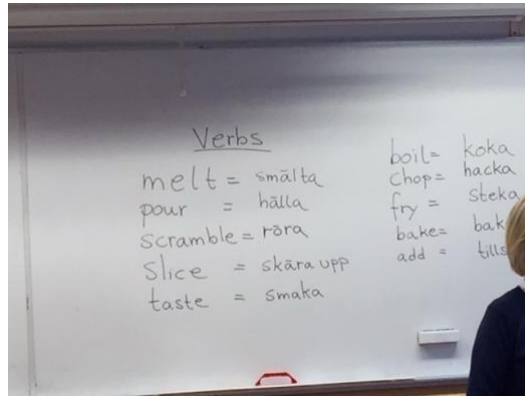 Verbs
melt = smälta
pour = hälla
scramble = röra
Slice = skära upp
taste = smaka
boil = koka
Chop = hacka
fry = steka
bake =
add =